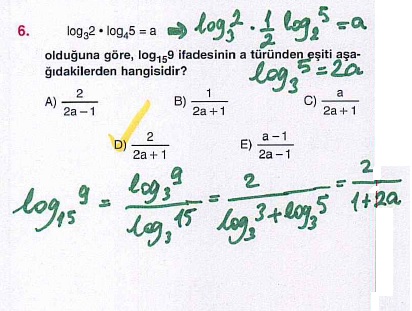 6. log₃2 • log₄5 = a ⇒ log₃2 · 1/2 log₂5 = a
olduğuna göre, log₁₅9 ifadesinin a türünden eşiti aşa-
ğıdakilerden hangisidir?
log₃5 = 2a
A) 2/(2a – 1) B) 1/(2a + 1) C) a/(2a + 1)
D) 2/(2a + 1) E) (a – 1)/(2a – 1)
log₁₅9 = log₃9/log₃15 = 2/(log₃3 + log₃5) = 2/(1 + 2a)